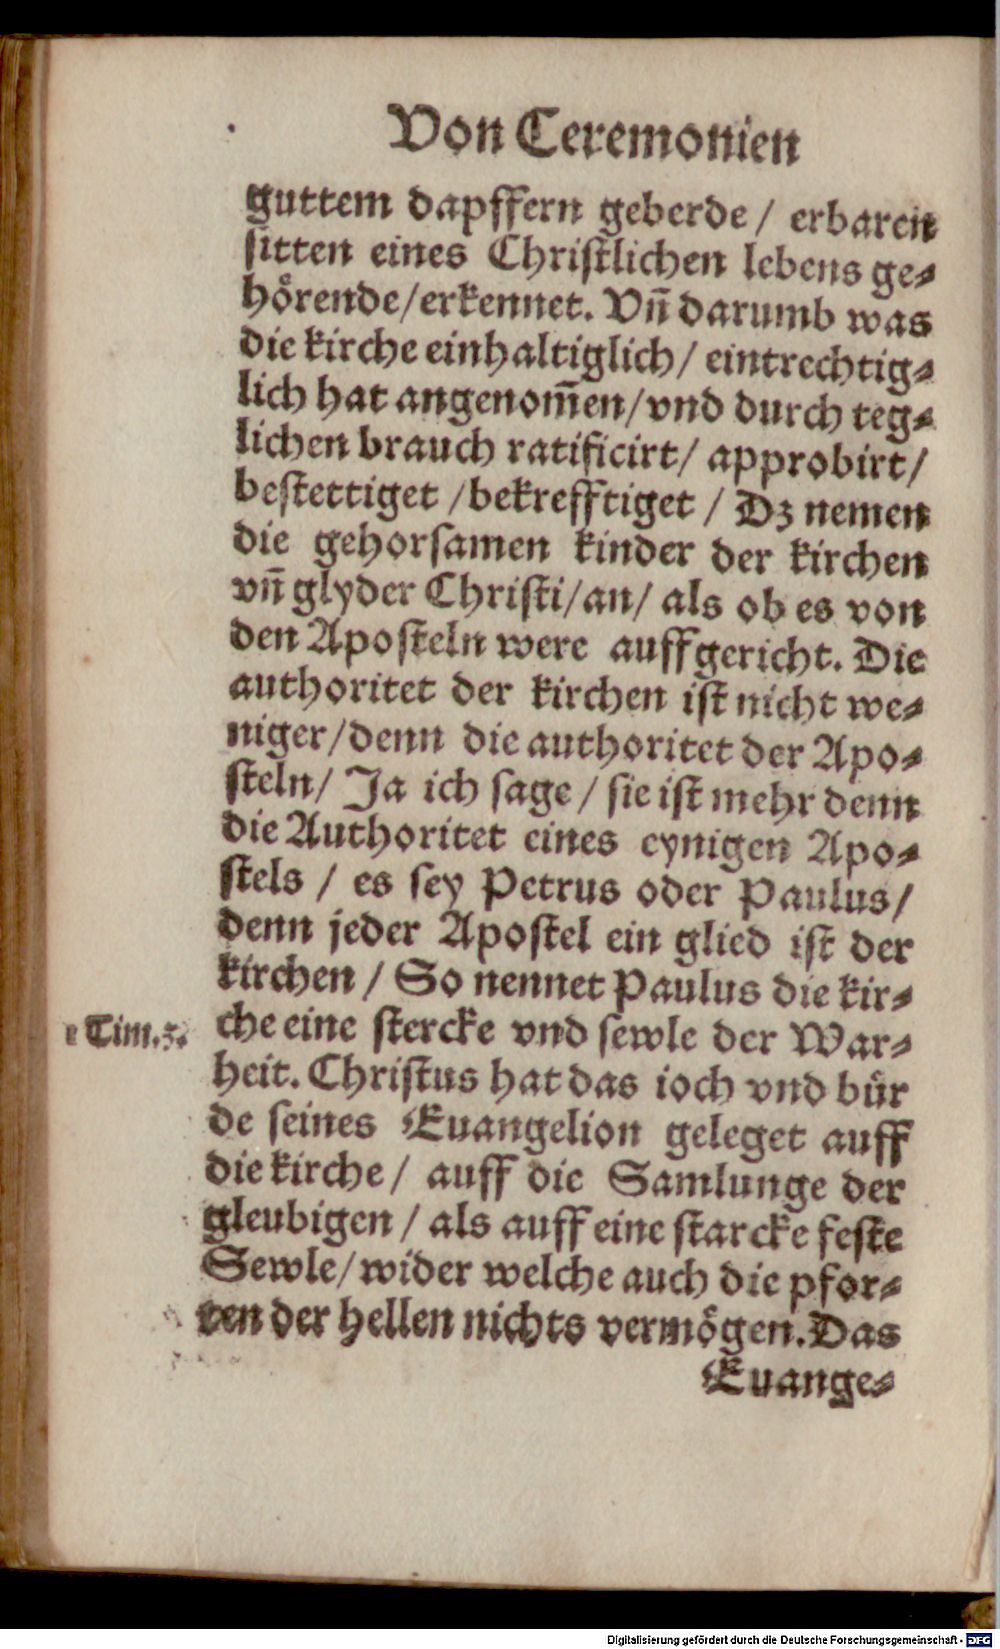 Von Ceremonien
guttem dapffern geberde / erbaren
sitten eines Christlichen lebens ge⸗
hörende/erkennet. Vñ darumb was
die kirche einhaltiglich/ eintrechtig⸗
lich hat angenom̃en/vnd durch teg⸗
lichen brauch ratificirt/ approbirt/
bestettiget /bekrefftiget / Dz nemen
die gehorsamen kinder der kirchen
vñ glyder Christi/an/ als ob es von
den Aposteln were auffgericht. Die
authoritet der kirchen ist nicht we⸗
niger/denn die authoritet der Apo⸗
steln/ Ja ich sage / sie ist mehr denn
die Authoritet eines eynigen Apo⸗
stels / es sey Petrus oder Paulus/
denn jeder Apostel ein glied ist der
kirchen / So nennet Paulus die kir⸗
1 Tim.3.
che eine stercke vnd sewle der War⸗
heit. Christus hat das ioch vnd bür
de seines Euangelion geleget auff
die kirche / auff die Samlunge der
gleubigen / als auff eine starcke feste
Sewle/wider welche auch die pfor⸗
ten der hellen nichts vermögen. Das
Euange⸗
Digitalisierung gefördert durch die Deutsche Forschungsgemeinschaft - DFG